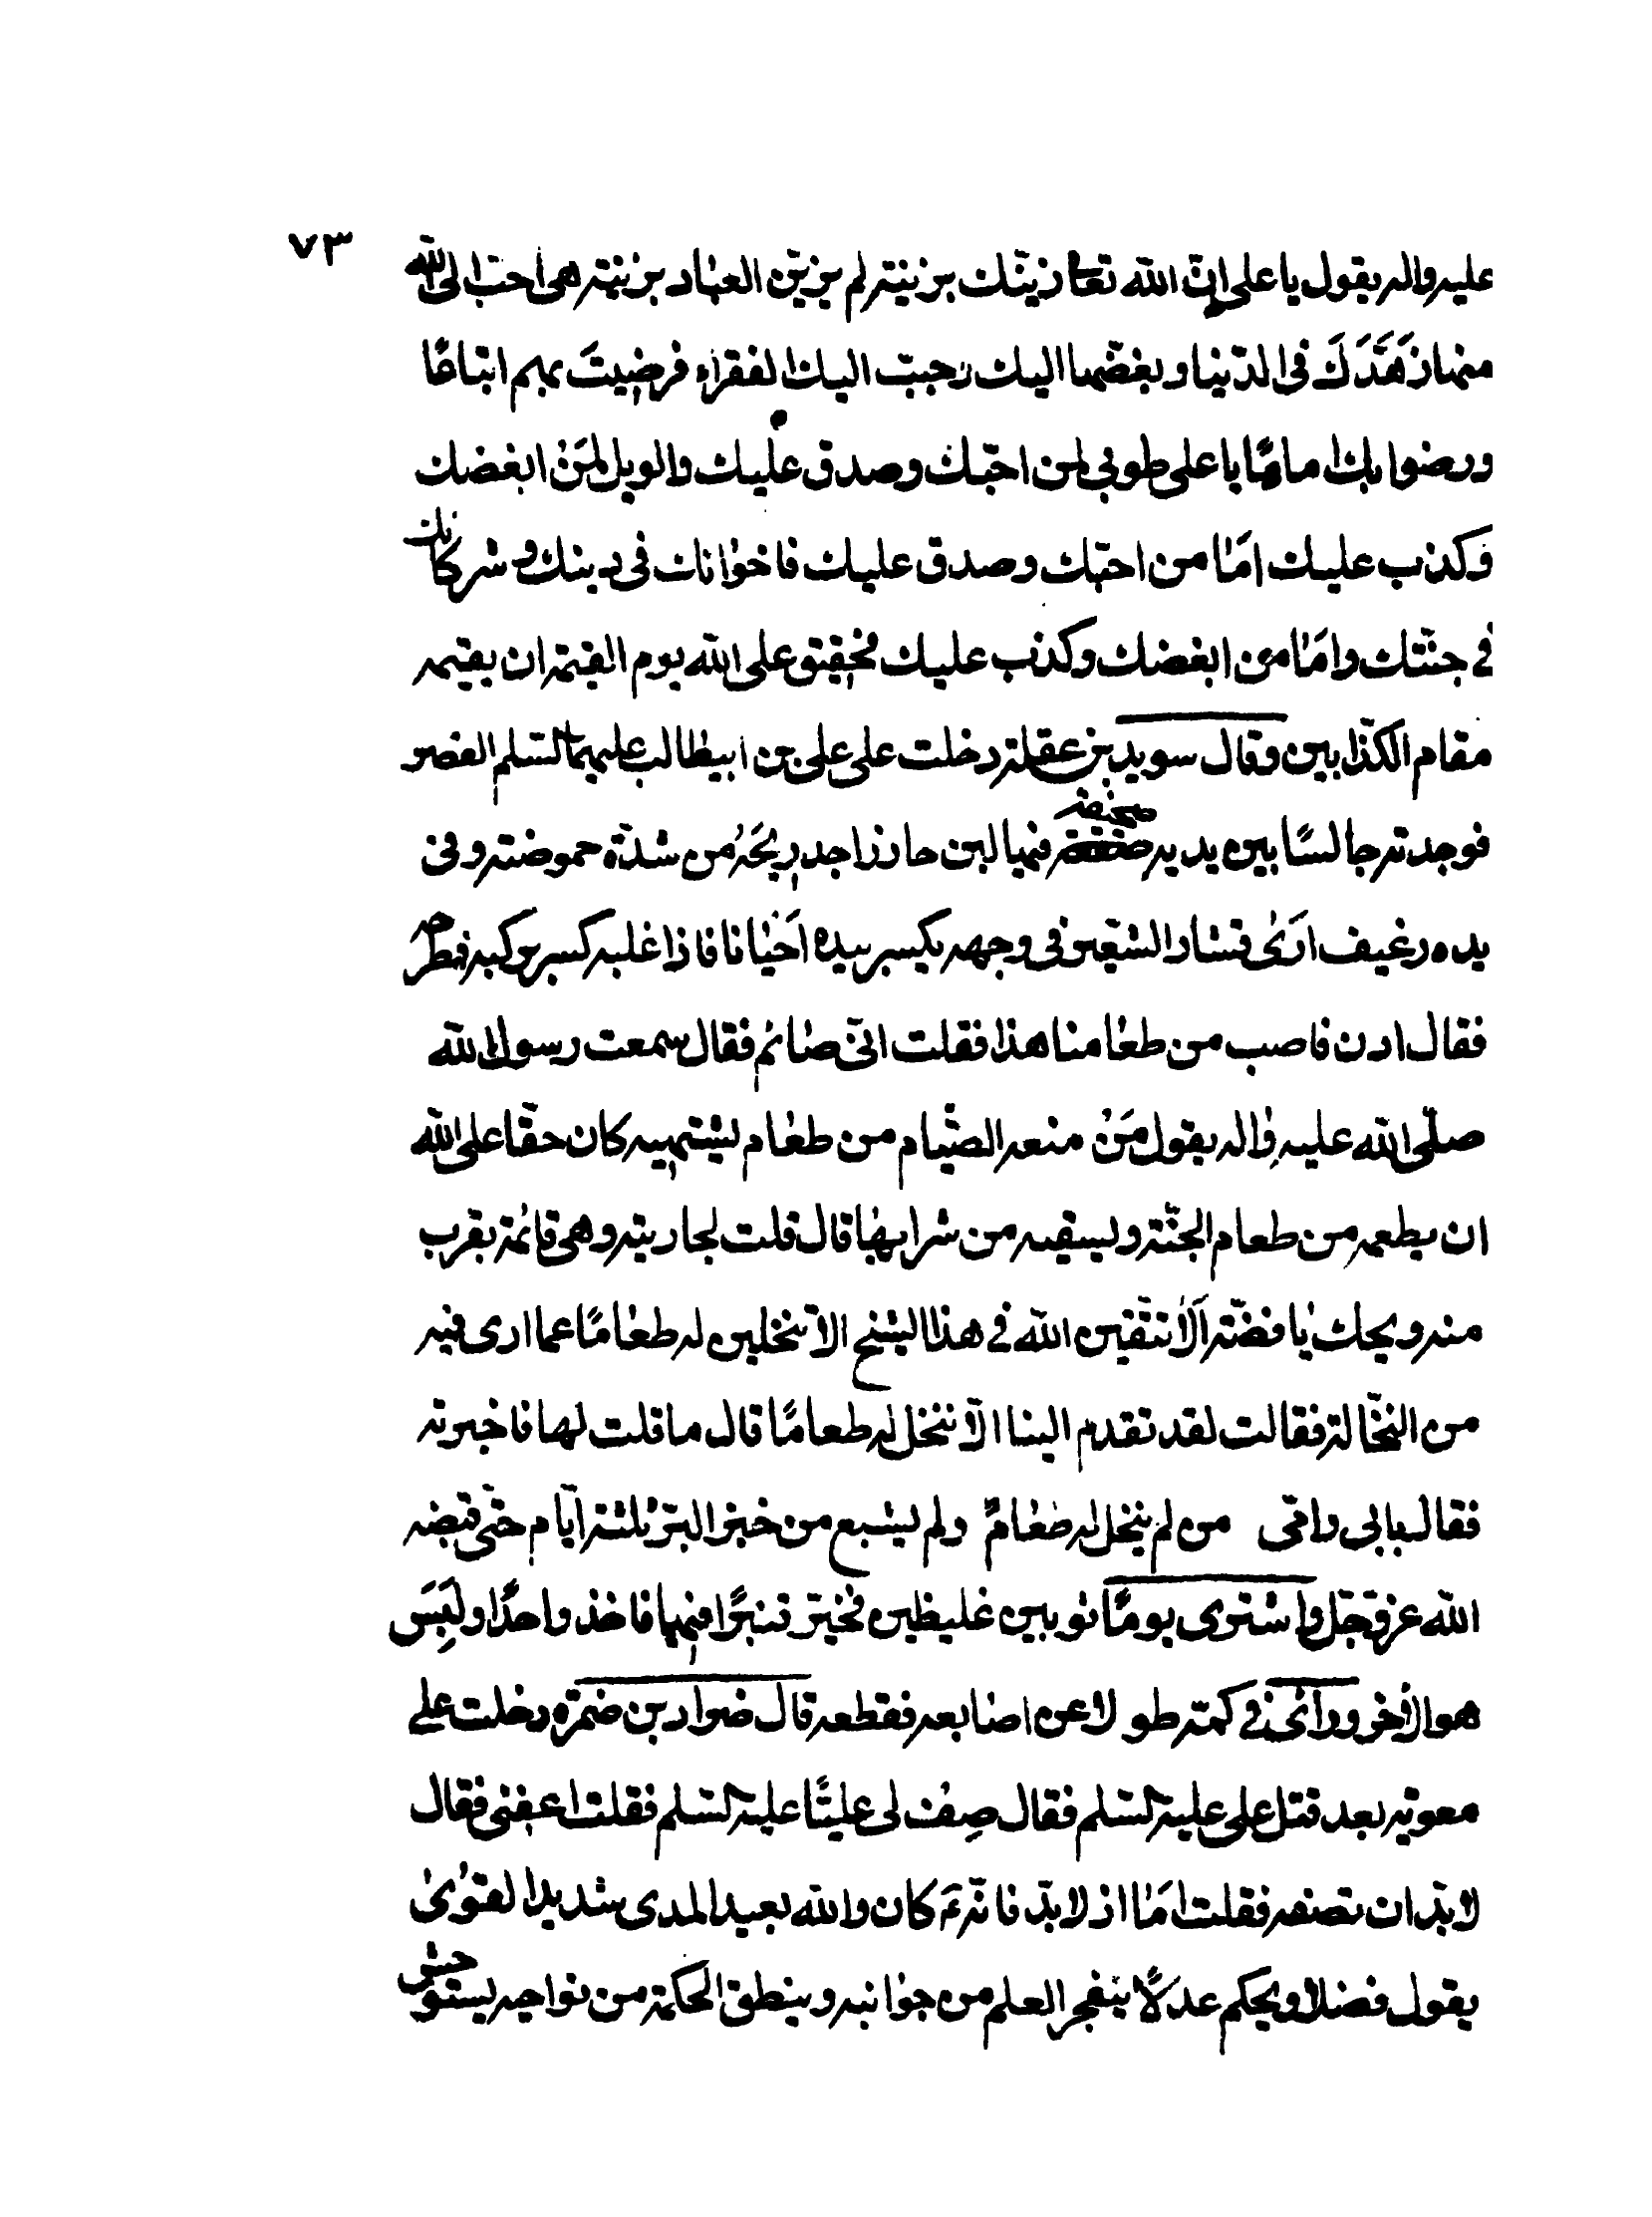 ٧٣
عليه واله يقول يا علي ان الله تعا زيّنك بزينة لم يزيّن العباد بزينة هى احبّ الى الله
منها زَهَّدَكَ فى الدّنيا وبغّضها اليك وحبّب اليك الفقراء فرضيتَ بهم اتباعًا
ورضوا بك امامًا يا على طوبى لمن احبّك وصدق عليك والويل لمَنْ ابغضك
وكذب عليك امّا من احبّك وصدق عليك فاخوانك فى دينك وشركائك
فى جنّتك وامّا من ابغضك وكذب عليك فحقيق على الله يوم القيمة ان يقيمه
مقام الكذّابين وقال سويد بن عقلة دخلت على على بن ابيطالب عليهما السّلم القصر
فوجدته جالسًا بين يديه صحيفة فيها لبن حازر اجد ريحَهُ من شدّة حموضته وفى
يده رغيف ارى قشار الشعير فى وجهه يكسر بيده اَحْيانا فاذا غلبه كسر بركبه فطرحه
فقال ادن فاصب من طعامنا هذا فقلت انّى صائم فقال سمعت رسول الله
صلّى الله عليه واله يقول مَنْ منعه الصّيام من طعام يشتهيه كان حقّا على الله
ان يطعمه من طعام الجنّة ويسقيه من شرابها قال قلت لجاريته وهى قائمة بقرب
منه ويحك يا فضّة اَلا تتّقين الله فى هذا الشيخ الا تنخلين له طعامًا عما ارى فيه
من النخّالة فقالت لقد تقدم الينا الّا ننخل له طعامًا قال ما قلت لها فاخبرته
فقال بابى وامّى من لم ينخل له طعامٌ ولم يشبع من خبز البرّ ثلثة ايّام حتّى قبضه
الله عز وجّل واشترى يومًا ثوبين غليظين فخيّر قنبرًا فيهما فاخذ واحدًا ولَبِسَ
هو الاخر وراى فى كمّه طولا عن اصابعه فقطعه قال ضرار بن ضمرة دخلت على
معوية بعد قتل على عليه السّلم فقال صِفْ لى عليًّا عليه السّلم فقلت اعفنى فقال
لا بدّ ان تصفه فقلت امّا اذ لا بدّ فانّه كان والله بعيد المدى شديد القوى
يقول فضلا ويحكم عدلًا يتفجر العلم من جوانبه وينطق الحكمة من نواحيه يستوحش